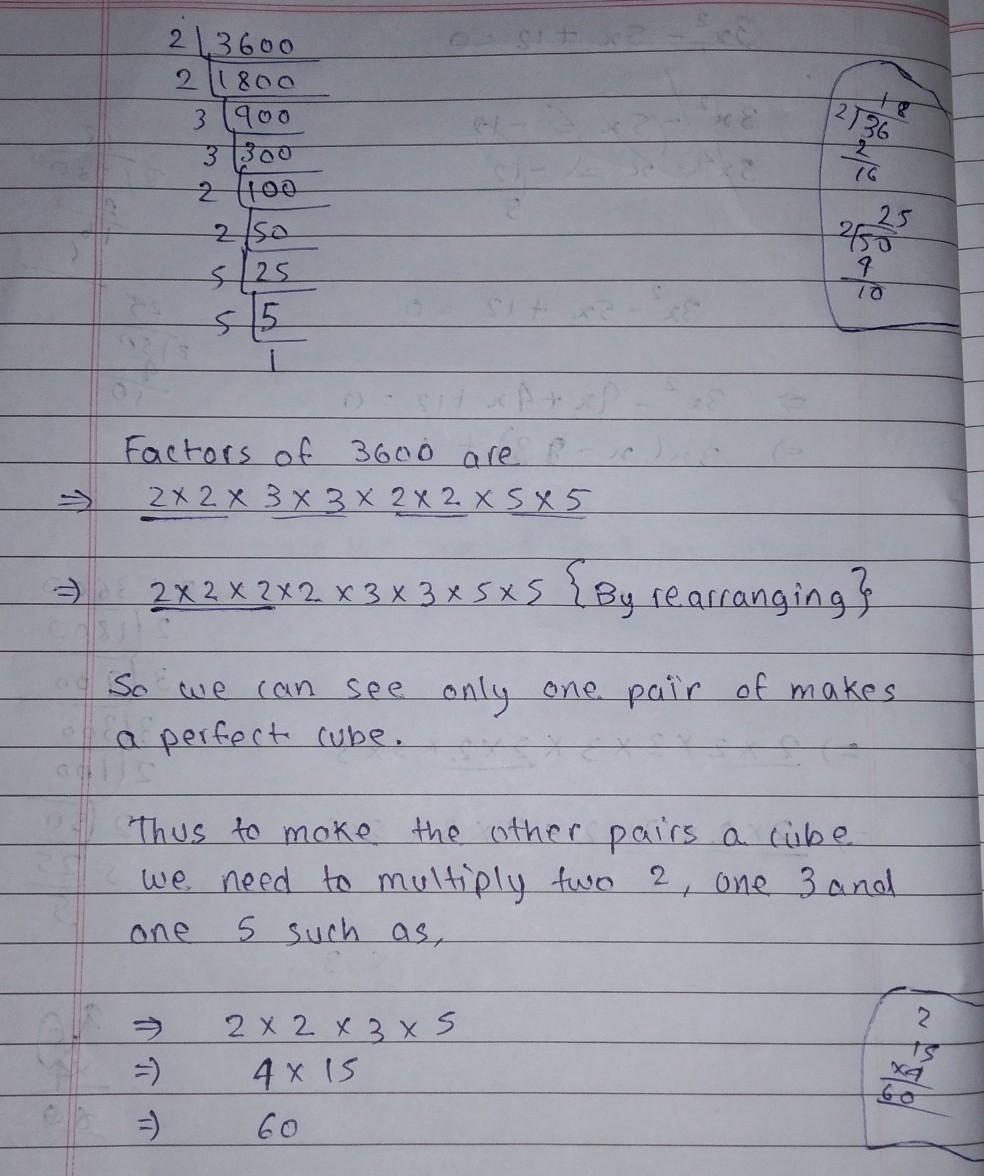 2 | 3600
2 | 1800
3 | 900
3 | 300
2 | 100
2 | 50
5 | 25
5 | 5
1
18
2) 36
2
16
25
2) 50
4
10
Factors of 3600 are
⇒ 2 × 2 × 3 × 3 × 2 × 2 × 5 × 5
⇒ 2 × 2 × 2 × 2 × 3 × 3 × 5 × 5 {By rearranging}
So we can see only one pair of makes
a perfect cube.
Thus to make the other pairs a cube
we need to multiply two 2, one 3 and
one 5 such as,
⇒ 2 × 2 × 3 × 5
⇒ 4 × 15
⇒ 60
2
15
×4
60